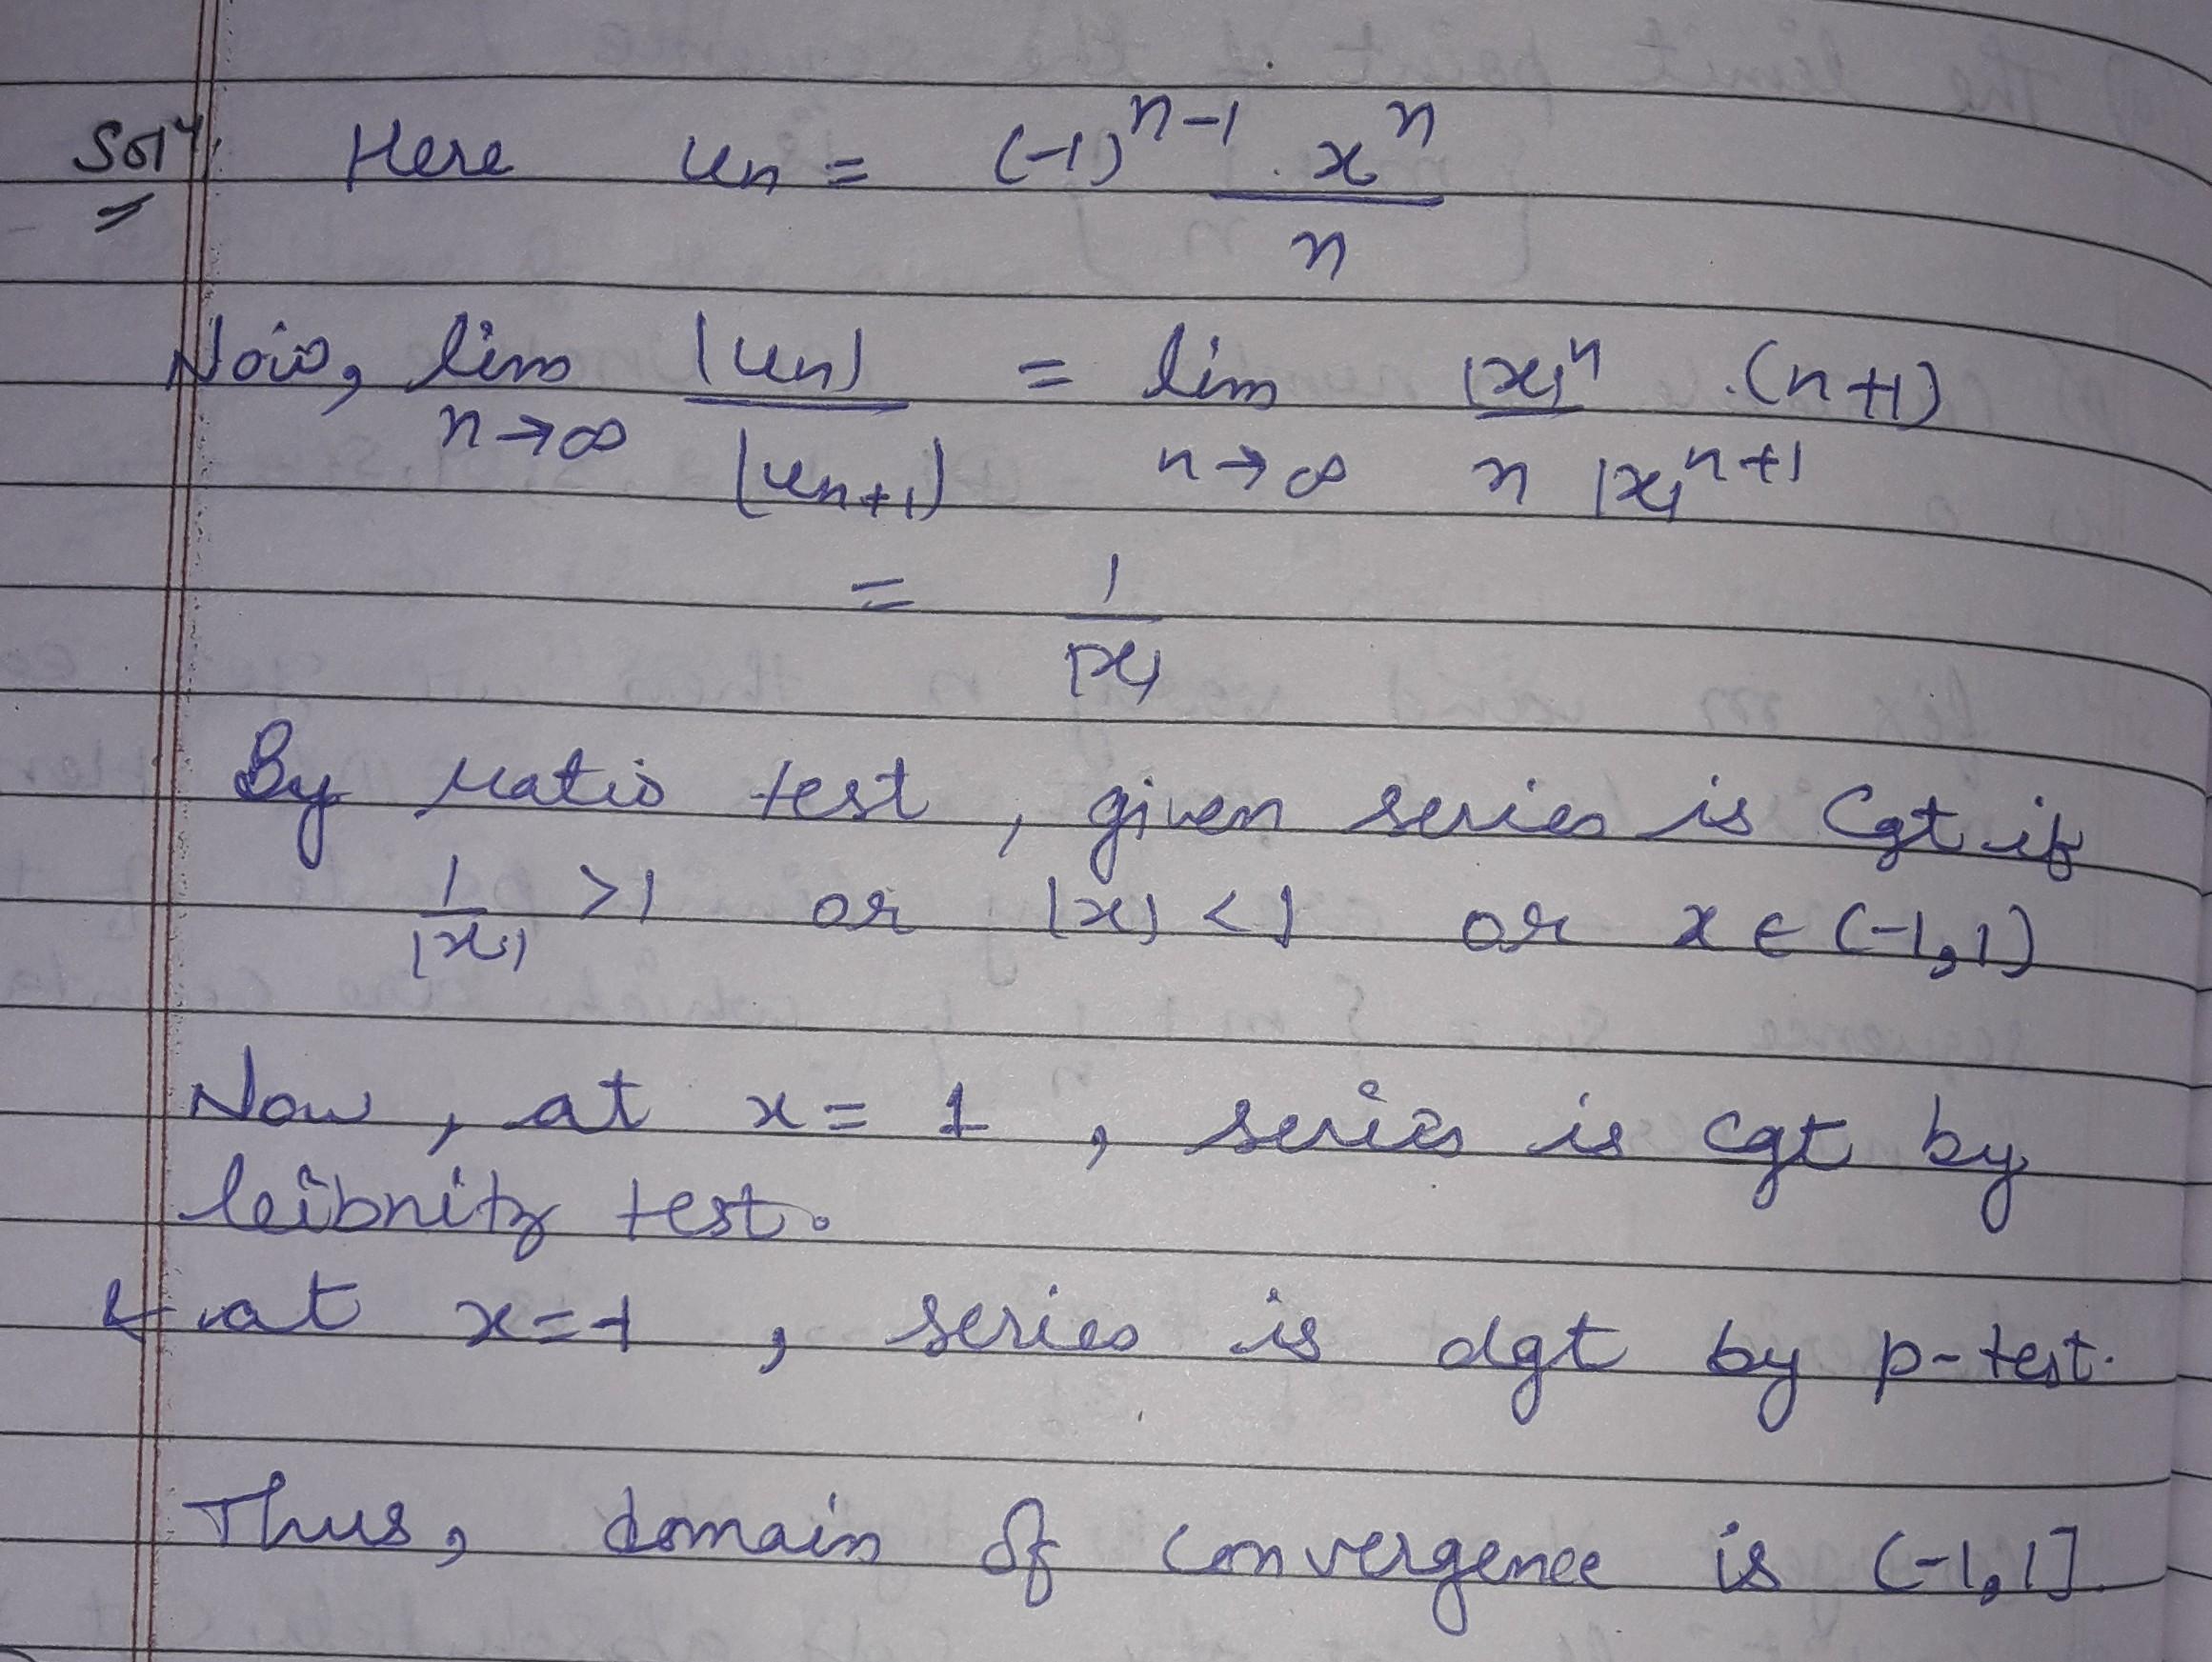 Solⁿ: Here uₙ = (-1)ⁿ⁻¹ · xⁿ / n
Now, lim n→∞ |uₙ| / |uₙ₊₁| = lim n→∞ |x|ⁿ · (n+1) / n |x|ⁿ⁺¹
= 1 / |x|
By ratio test, given series is Cgt if
1 / |x| > 1 or |x| < 1 or x ∈ (-1, 1)
Now, at x = 1, series is cgt by
leibnitz test.
& at x = -1, series is dgt by p-test.
Thus, domain of convergence is (-1, 1].